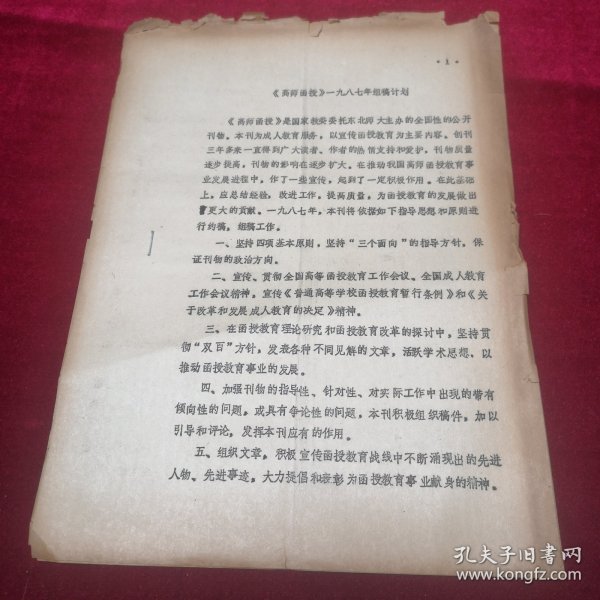 ·1·
《高师函授》一九八七年组稿计划
《高师函授》是国家教委委托东北师大主办的全国性的公开
刊物。本刊为成人教育服务,以宣传函授教育为主要内容。创刊
三年多来一直得到广大读者、作者的热情支持和爱护,刊物质量
逐步提高,刊物的影响在逐步扩大。在推动我国高师函授教育事
业发展进程中,作了一些宣传,起到了一定积极作用。在此基础
上,应总结经验,改进工作,提高质量,为函授教育的发展做出
更大的贡献。一九八七年,本刊将依据如下指导思想和原则进
行约稿,组稿工作。
一、坚持四项基本原则,坚持“三个面向”的指导方针,保
证刊物的政治方向。
二、宣传、贯彻全国高等函授教育工作会议、全国成人教育
工作会议精神。宣传《普通高等学校函授教育暂行条例》和《关
于改革和发展成人教育的决定》精神。
三、在函授教育理论研究和函授教育改革的探讨中,坚持贯
彻“双百”方针,发表各种不同见解的文章,活跃学术思想、以
推动函授教育事业的发展。
四、加强刊物的指导性、针对性、对实际工作中出现的带有
倾向性的问题,或具有争论性的问题,本刊积极组织稿件,加以
引导和评论,发挥本刊应有的作用。
五、组织文章,积极宣传函授教育战线中不断涌现出的先进
人物、先进事迹,大力提倡和表彰为函授教育事业献身的精神。
孔夫子旧书网
www.kongfz.com